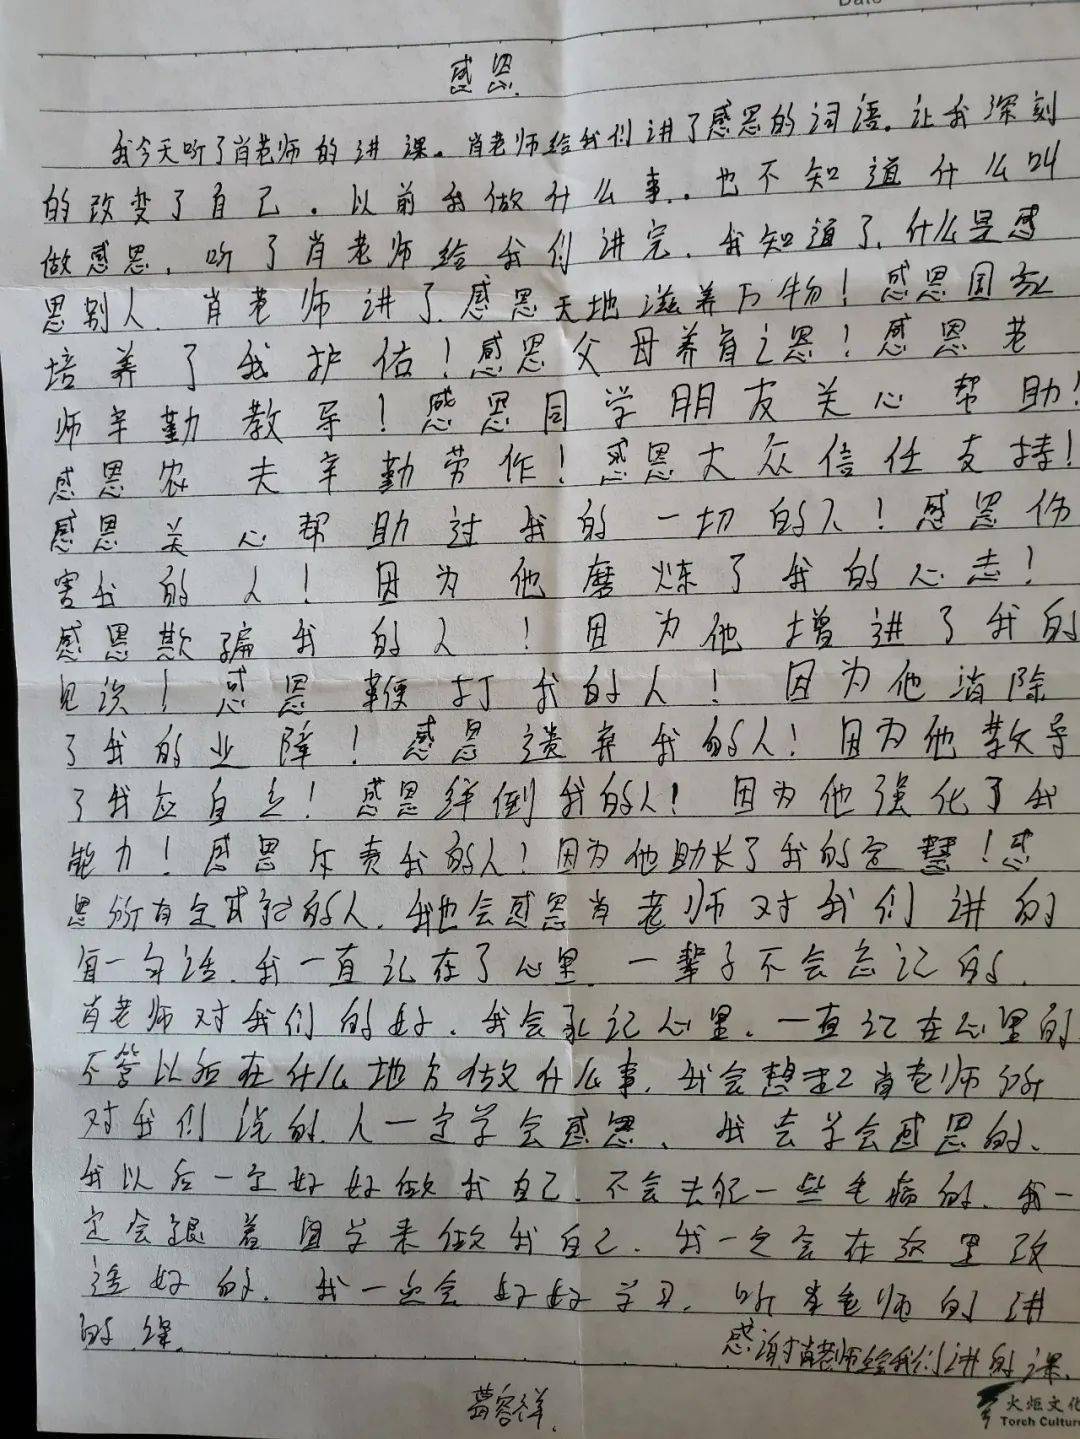 Date
感恩.
我今天听了肖老师的讲课。肖老师给我们讲了感恩的词语。让我深刻
的改变了自己。以前我做什么事..也不知道什么叫
做感恩,听了肖老师给我们讲完,我知道了,什么是感
恩别人,肖老师讲了感恩天地滋养万物!感恩国家
培养了我护佑!感恩父母养育之恩!感恩老
师辛勤教导!感恩同学朋友关心帮助!
感恩农夫辛勤劳作!感恩大众信任支持!
感恩关心帮助过我的一切的人!感恩伤
害我的人!因为他磨炼了我的心志!
感恩欺骗我的人!因为他增进了我的
见识!感恩鞭打我的人!因为他消除
了我的业障!感恩遗弃我的人!因为他教导
了我应自立!感恩绊倒我的人!因为他强化了我
能力!感恩斥责我的人!因为他助长了我的定慧!感
恩所有的人,我也会感恩肖老师对我们讲的
每一句话,我一直记在了心里,一辈子不会忘记的,
肖老师对我们的好,我会永记心里,一直记在心里的
不管以后在什么地方做什么事,我会想起肖老师所
对我们说的,人一定学会感恩、我会学会感恩的、
我以后一定好好做我自己,不会去犯一些毛病的,我一
定会跟着国学来做我自己,我一定会在这里改
造好的,我一定会好好学习,听老师的讲
的课,
感谢肖老师给我们讲的课,
葛容祥.
火炬文化
Torch Culture